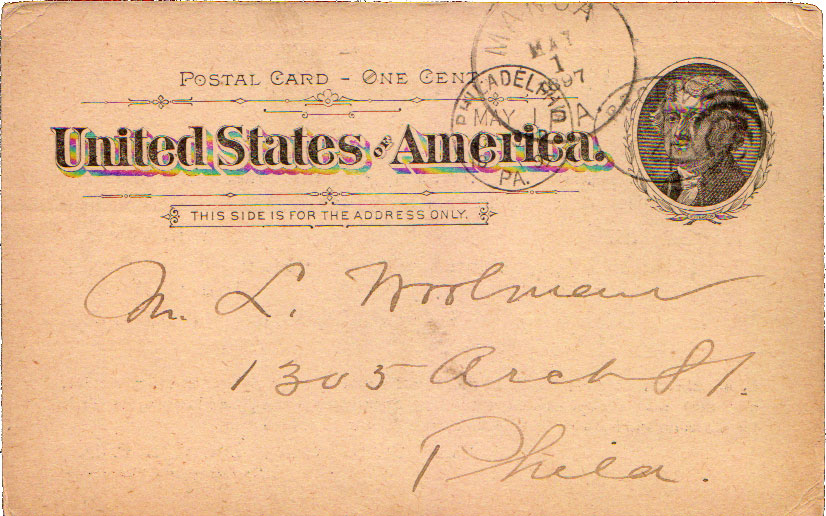 POSTAL CARD - ONE CENT
United States OF America.
THIS SIDE IS FOR THE ADDRESS ONLY.
MANOA
MAY
1
1897
PA.
PHILADELPHIA
MAY 1
PA.
M. L. Woolman
1305 Arch St.
Phila.